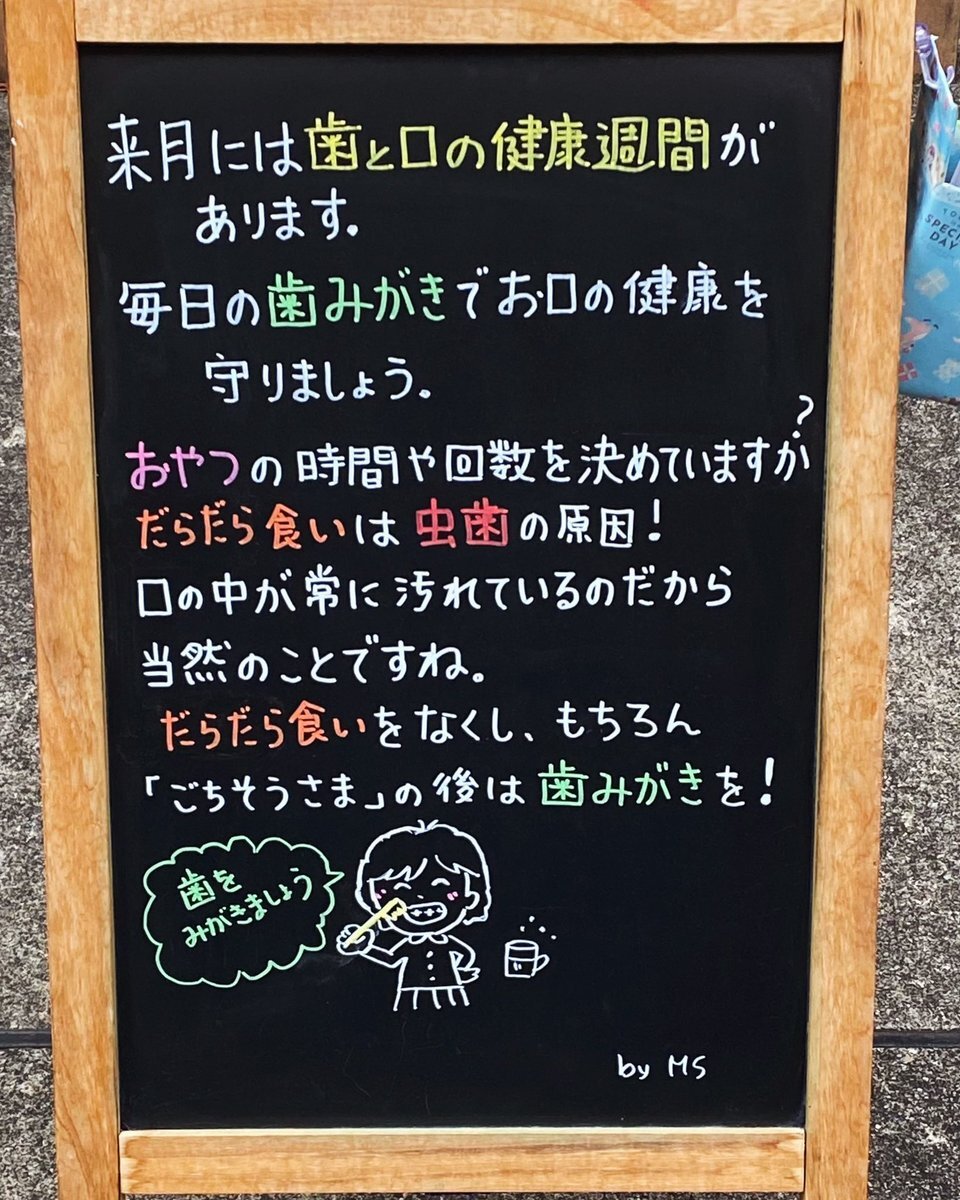 来月には歯と口の健康週間が
あります。
毎日の歯みがきでお口の健康を
守りましょう。
おやつの時間や回数を決めていますか?
だらだら食いは虫歯の原因!
口の中が常に汚れているのだから
当然のことですね。
だらだら食いをなくし、もちろん
「ごちそうさま」の後は歯みがきを!
歯を
みがきましょう
by MS
SPECI
DAY